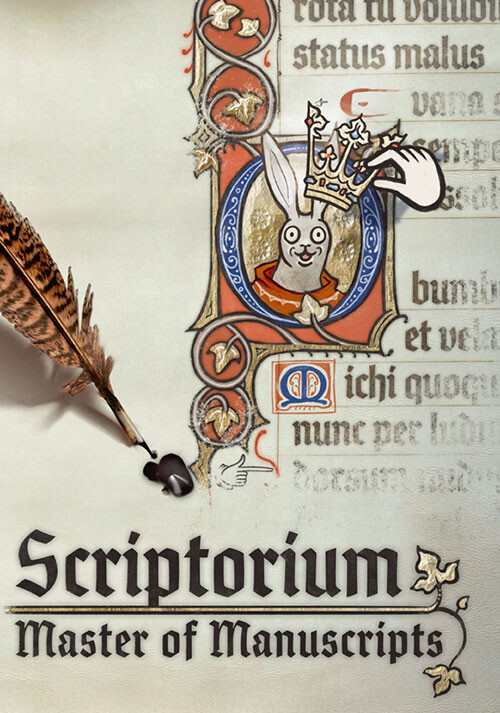 rota tu volubi
status malus
vana
sempe
ssol
bumb
et vela
Michi quoqu
nunc per ludu
dorsum nudu
Scriptorium
Master of Manuscripts